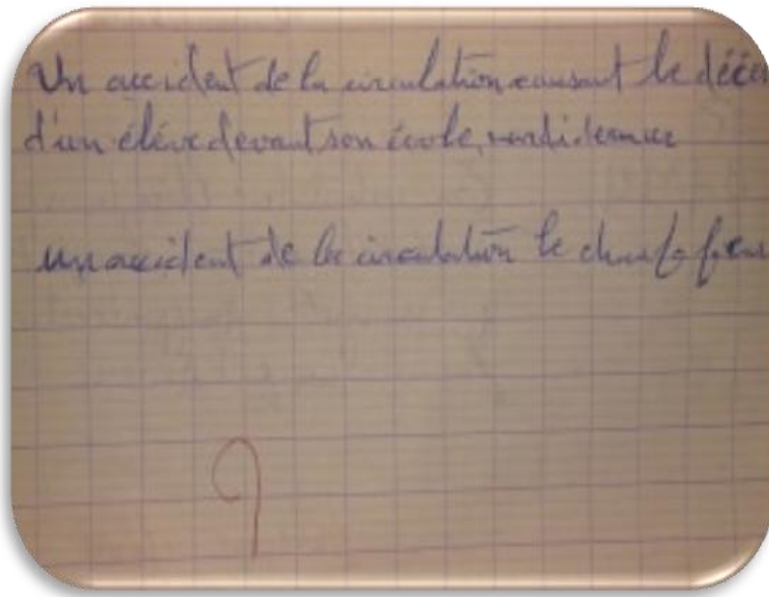 Un accident de la circulation causant le décès
d'un élève devant son école, mardi dernier
un accident de la circulation le chauf
9